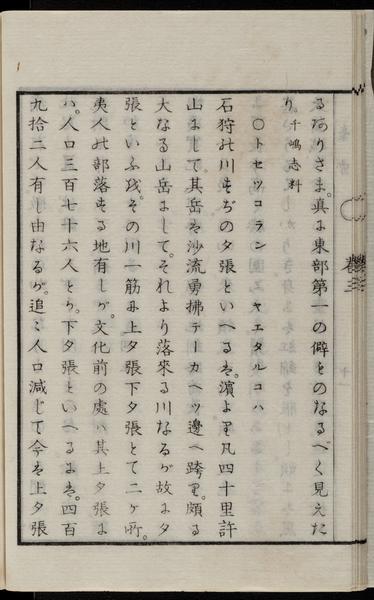 るありさま。真に東部第一の僻地のなるべく見えた
り。千嶋志料
○トセツコラン ヱヤエタルコハ
石狩の川すぢの夕張といへるは。濱より凡四十里許
山にして。其岳を沙流勇拂テーカヘツ邊へ跨り。頗る
大なる山岳にして。それより落來る川なるが故に夕
張といふ哉。その川一筋に上夕張下夕張とて二ケ所。
夷人の部落する地有しが。文化前の處ハ其上夕張に
ハ。人口三百七十六人とか。下夕張といへるには。四百
九拾二人有し由なるが。追〻人口減じて今は上夕張
巻三